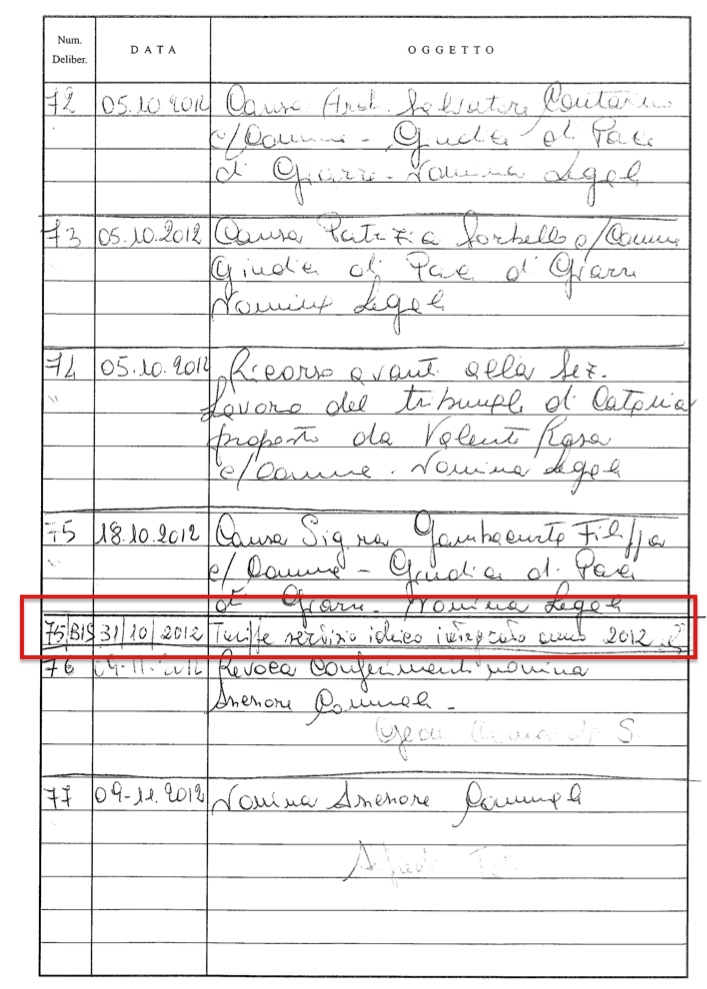 Num. Deliber. DATA OGGETTO
72 05.10.2012 Causa Arch. Salvatore Contarino
c/Comune - Giudice di Pace
di Giarre - Nomina Legale
73 05.10.2012 Causa Patrizia Sorbello c/Comune
Giudice di Pace di Giarre
Nomina Legale
74 05.10.2012 Ricorso avanti alla Sez.
Lavoro del tribunale di Catania
proposto da Valenti Rosa
c/Comune - Nomina Legale
75 18.10.2012 Causa Sig.ra Gambacurta Filippa
c/ Comune - Giudice di Pace
di Giarre - Nomina Legale
75 BIS 31/10/2012 Tariffe servizio idrico integrato anno 2012
76 09-11-2012 Revoca Conferimento nomina
Assessore Comunale -
S.
77 09-11.2012 Nomina Assessore Comunale
Alfredo